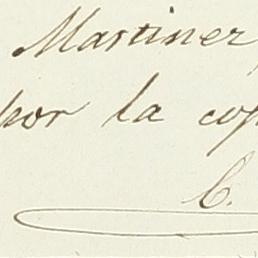 Martinez
por la cop
C.